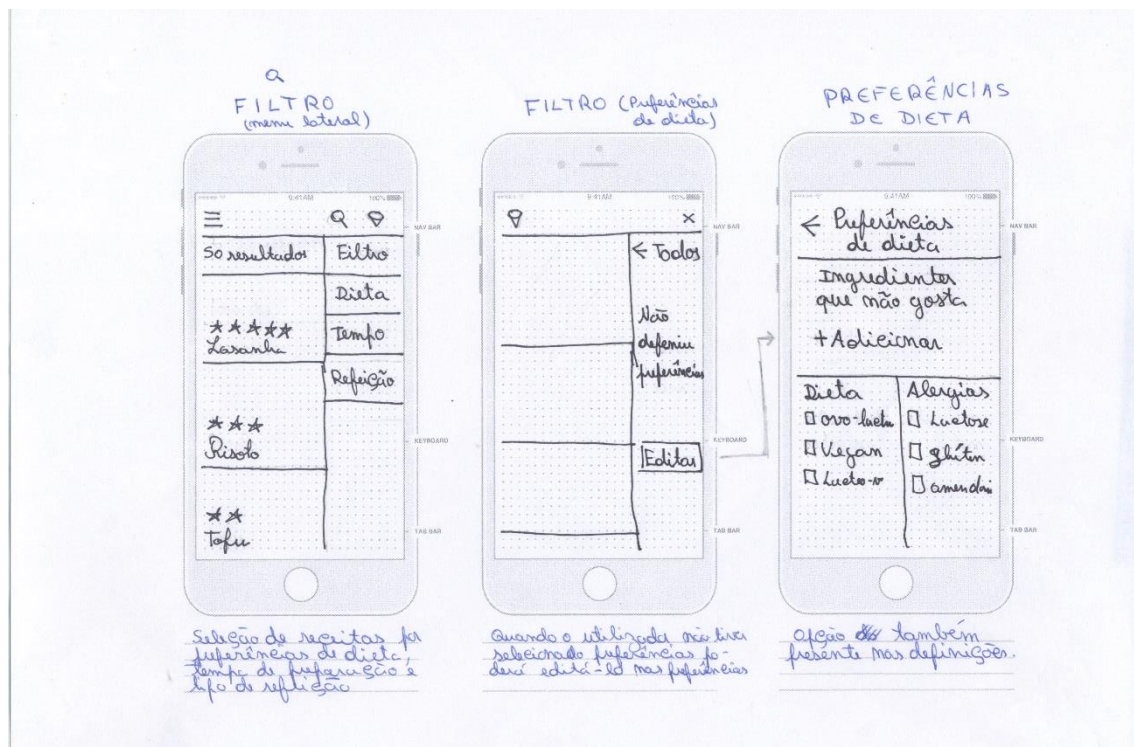 FILTRO
(menu lateral)
9:41AM
100%
NAV BAR
50 resultados
Filtro
Dieta
★★★★★
Tempo
Lasanha
Refeição
★★★
KEYBOARD
Risoto
★★
Tofu
TAB BAR
Seleção de receitas por
preferências de dieta,
tempo de preparação e
tipo de refeição
FILTRO (Preferências
de dieta)
9:41AM
100%
×
NAV BAR
← Todos
Não
defeniu
preferências
KEYBOARD
Editar
TAB BAR
Quando o utilizador não tiver
selecionado preferências po-
derá editá-lo nas preferências
PREFERÊNCIAS
DE DIETA
9:41AM
100%
← Preferências
NAV BAR
de dieta
Ingredientes
que não gosta
+ Adicionar
Dieta
ovo-lacto
Vegan
Lacto-v
Alergias
Lactose
glúten
amendoi
KEYBOARD
TAB BAR
Opção também
presente nas definições.